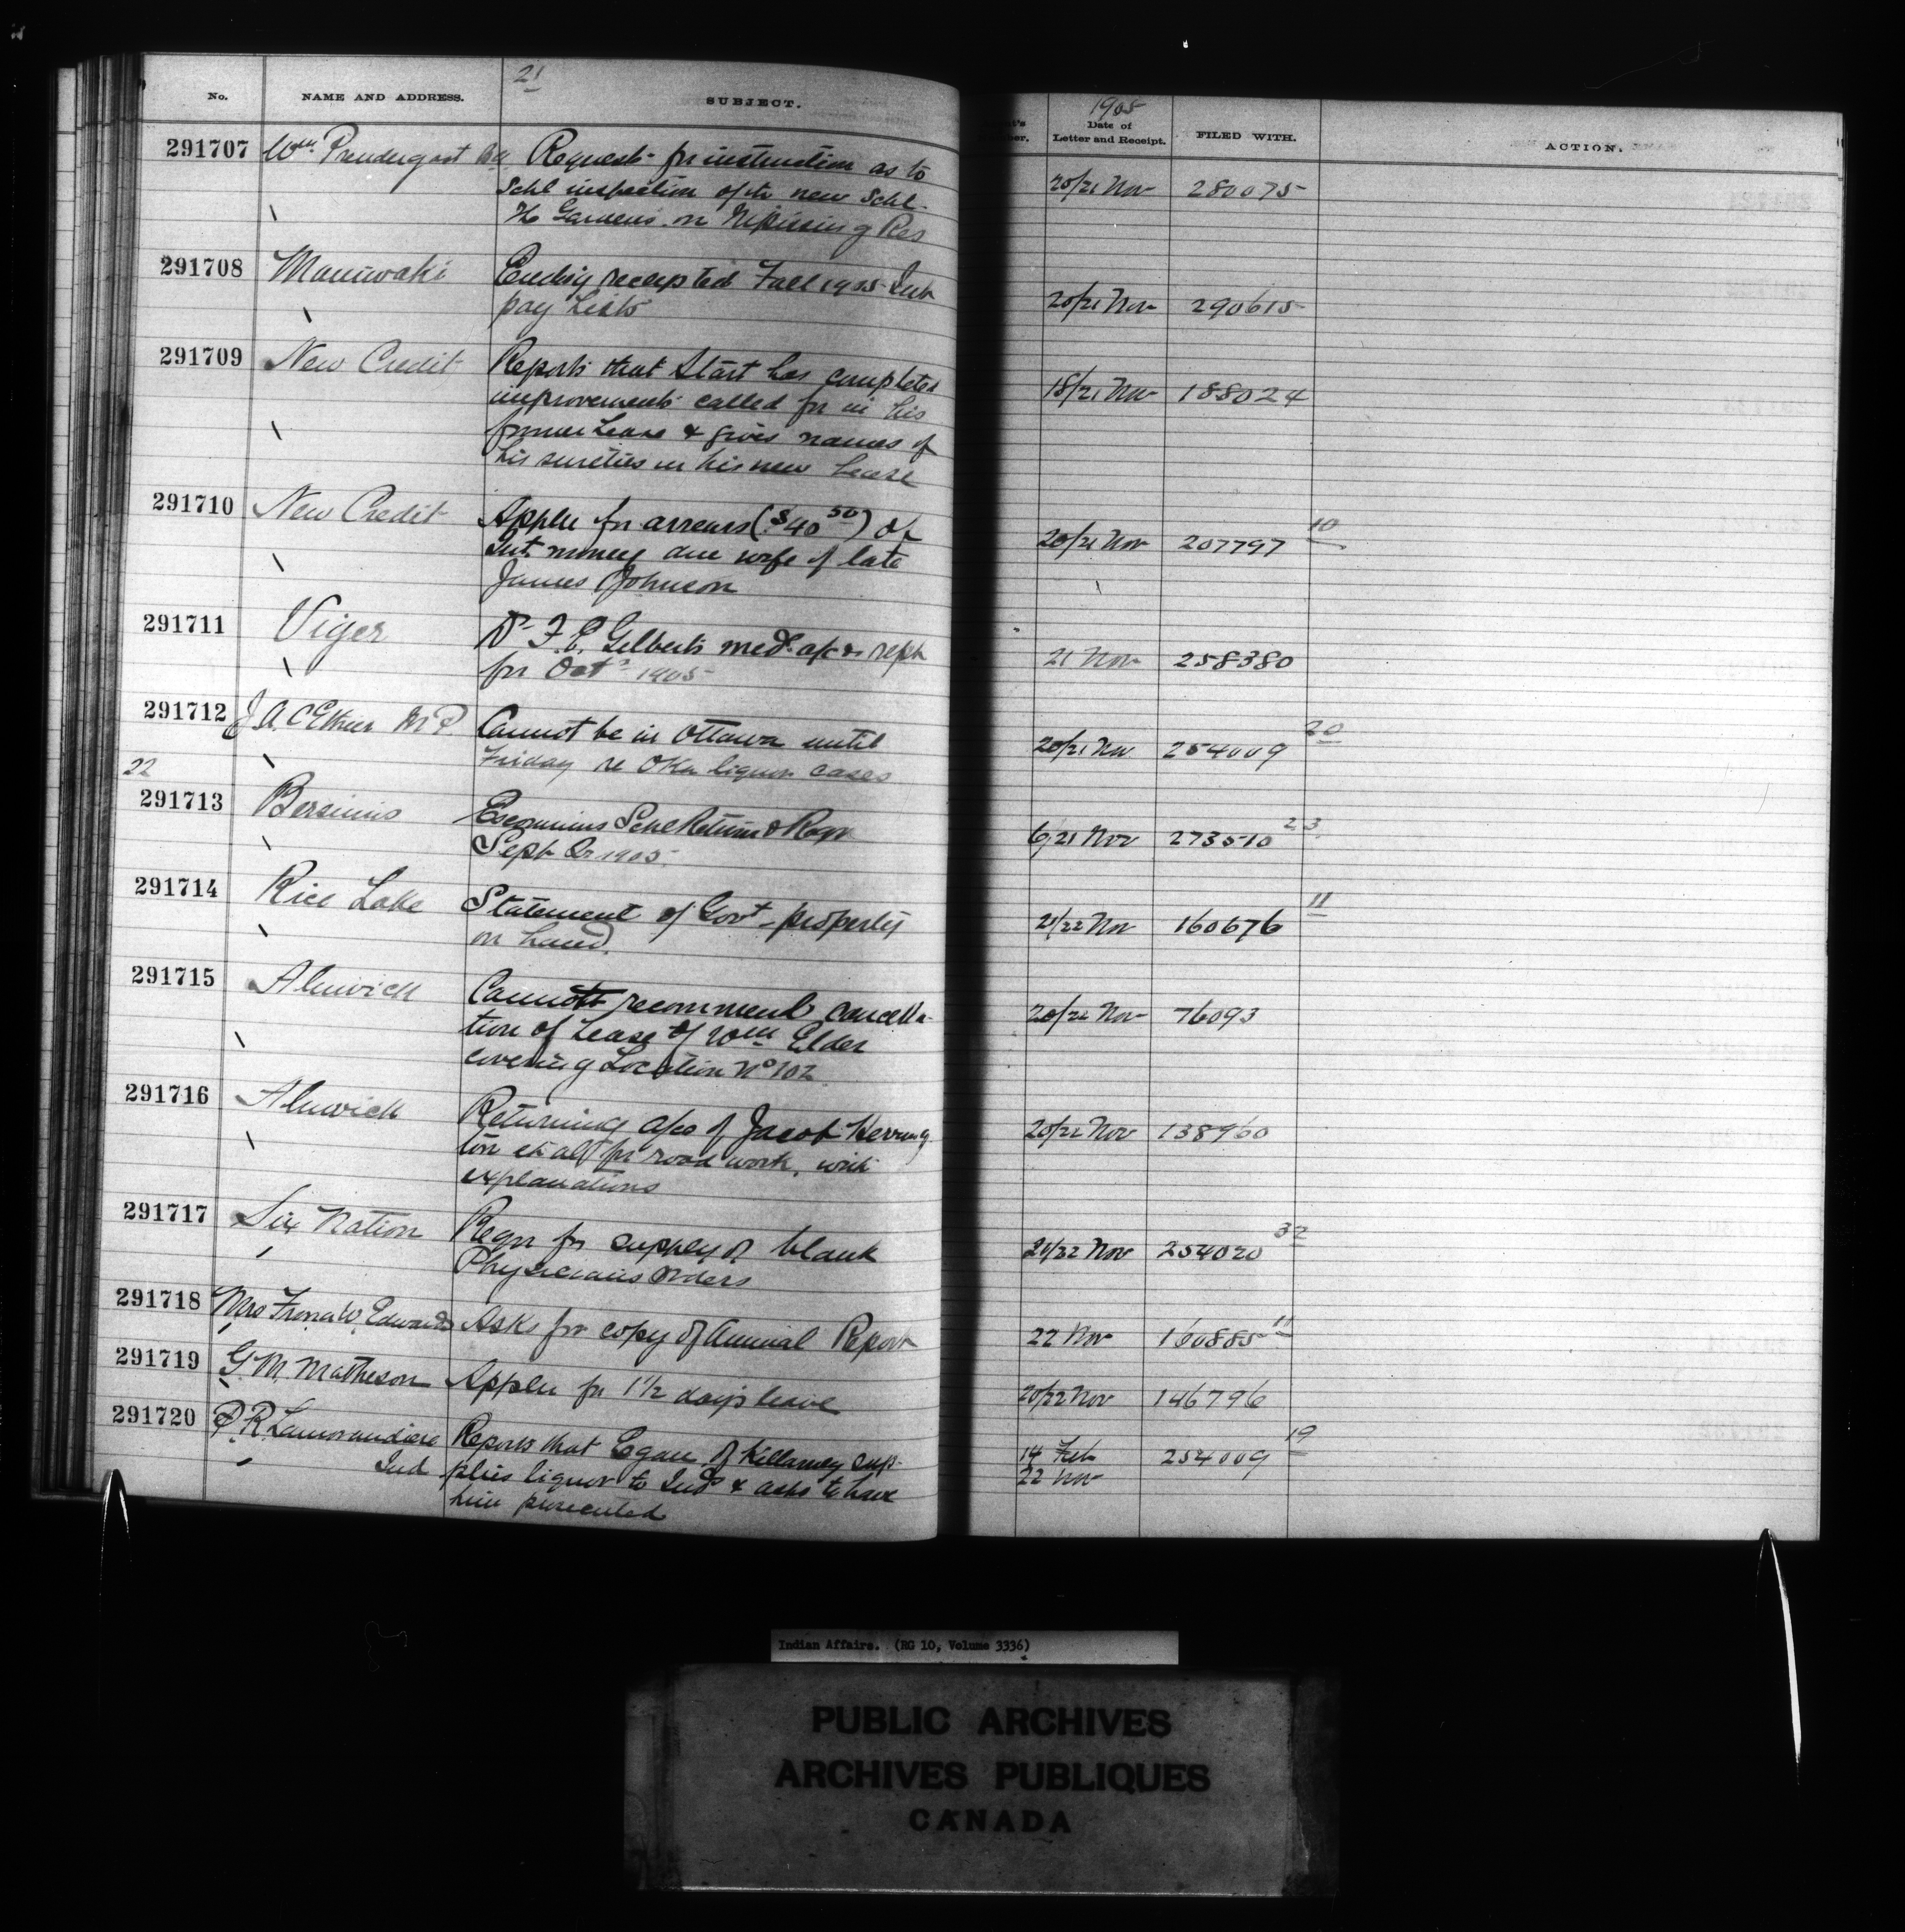 21
1905
No. NAME AND ADDRESS. SUBJECT. Date of Letter and Receipt. FILED WITH. ACTION.
291707 Wm. Prendergast Request for instruction as to 20/21 Nov 280075
Schl inspection of the new Schl.
Gardens on Nipissing Res
291708 Maniwaki receipted Fall 1905 Int 20/21 Nov 290615
pay Lists
291709 New Credit Reports that Start has completed 18/21 Nov 188024
improvements called for in his
former Lease & gives names of
his sureties in his new lease
291710 New Credit Appln for arrears ($40 50) of 20/21 Nov 207797 10
Int money due wife of late
James Johnson
291711 Viger Dr F. E. Gilberts med. a/c & rept 21 Nov 258380
for Oct 1905
291712 J. A. C. Ethier M P Cannot be in Ottawa until 20/21 Nov 254009 20
Friday re Oka liquor cases
22
291713 Bersimis Escoumins Schl Return & 6/21 Nov 273510 23
Sept Qr 1905
291714 Rice Lake Statement of Govt property 21/22 Nov 160676 11
on hand
291715 Alnwick Cannot recommend cancella- 20/22 Nov 76093
tion of Lease of Wm Elder
covering Location No 102
291716 Alnwick Returning a/cs of Jacob Herring 20/22 Nov 138960
ton et al for road work, with
explanations
291717 Six Nation Reqn for supply of blank 21/22 Nov 254020 32
Physicians orders
291718 Mrs Frona W. Edwards Asks for copy of Annual Report 22 Nov 160885 11
291719 G. M. Matheson Appln for 1 1/2 days leave 20/22 Nov 146796
291720 P. R. Lamorandiere Reports that Egan of Killarney sup- 14 Feb 254009 19
Ind plies liquor to Inds & asks to have 22 Nov
him prosecuted
Indian Affairs. (RG 10, Volume 3336)
PUBLIC ARCHIVES
ARCHIVES PUBLIQUES
CANADA